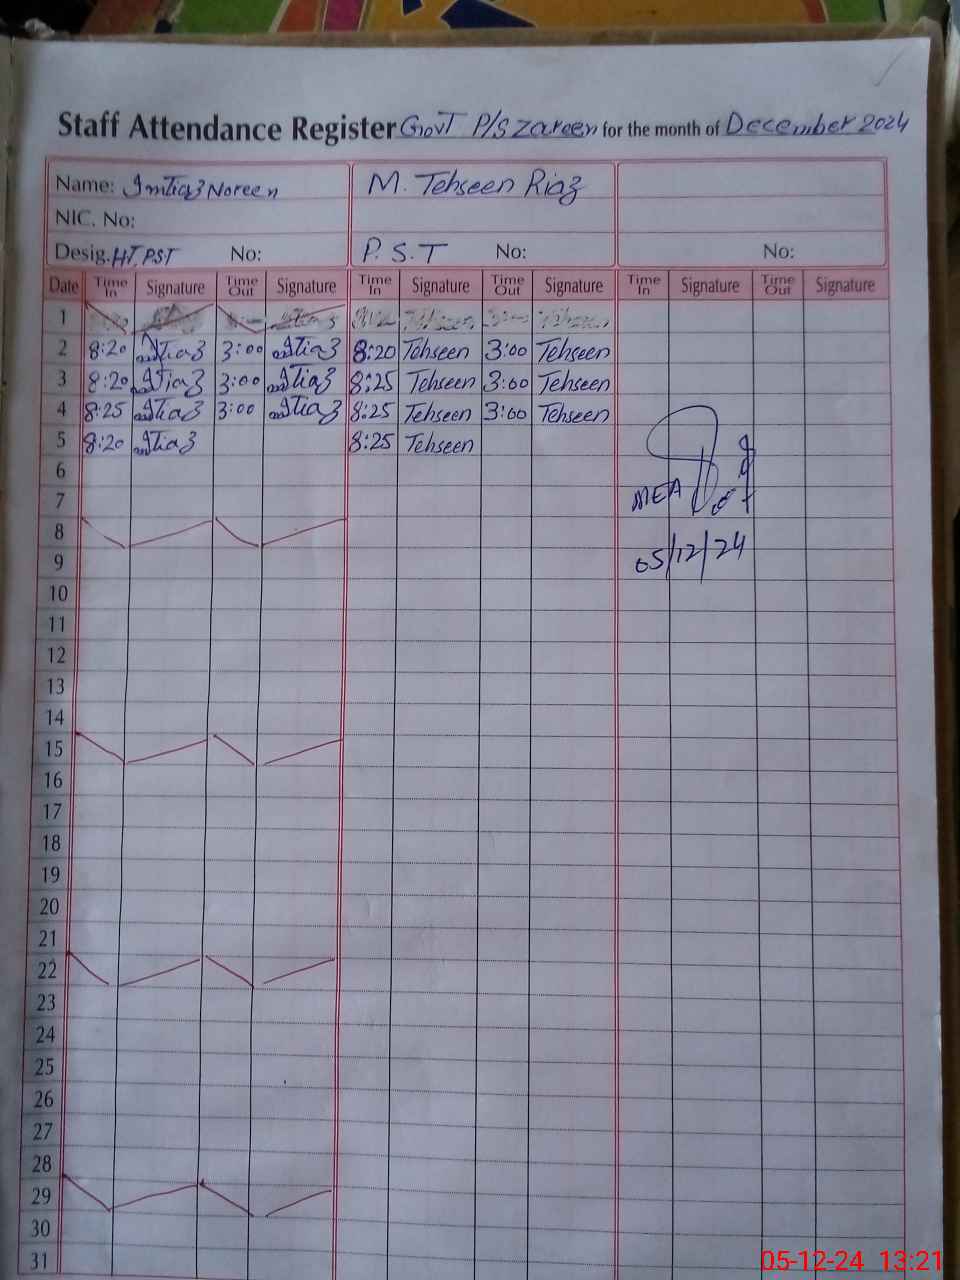 Staff Attendance Register Govt P/S Zareen for the month of December 2024
Name: Imtiaz Noreen M. Tehseen Riaz
NIC. No:
Desig. HT, PST No: P. S. T No: No:
Date Time In Signature Time Out Signature Time In Signature Time Out Signature Time In Signature Time Out Signature
1 Tehseen Tehseen
2 8:20 3:00 8:20 Tehseen 3:00 Tehseen
3 8:20 3:00 8:25 Tehseen 3:00 Tehseen
4 8:25 3:00 8:25 Tehseen 3:00 Tehseen
5 8:20 8:25 Tehseen
6
7 MEA
8
9 05/12/24
10
11
12
13
14
15
16
17
18
19
20
21
22
23
24
25
26
27
28
29
30
31
05-12-24 13:21